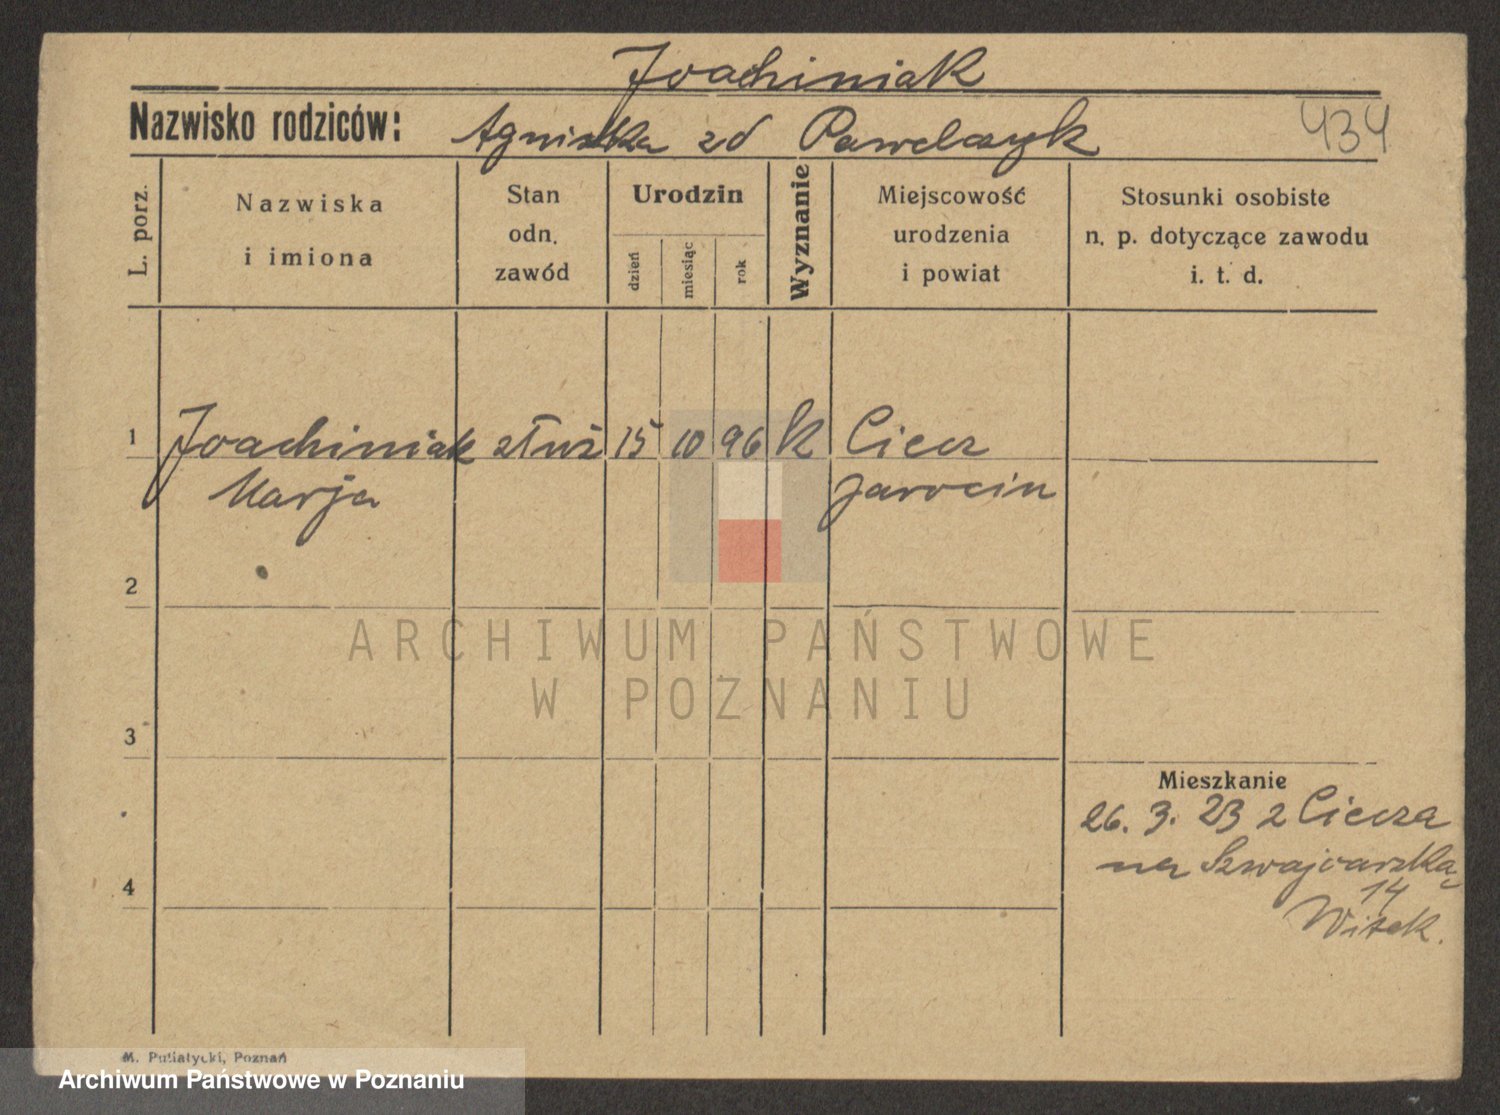 Joachiniak
Nazwisko rodziców: Agniszka zd Pawelczyk
434
L. porz.
Nazwiska
i imiona
Stan
odn.
zawód
Urodzin
dzień
miesiąc
rok
Wyznanie
Miejscowość
urodzenia
i powiat
Stosunki osobiste
n. p. dotyczące zawodu
i. t. d.
1 Joachiniak służ 15 10 96 k Ciecz
Marja Jarocin
2
ARCHIWUM PAŃSTWOWE
W POZNANIU
3
Mieszkanie
26. 3. 23 z Ciecza
na Szwajcarska
14
4
Witek.
M. Putiatycki, Poznań
Archiwum Państwowe w Poznaniu